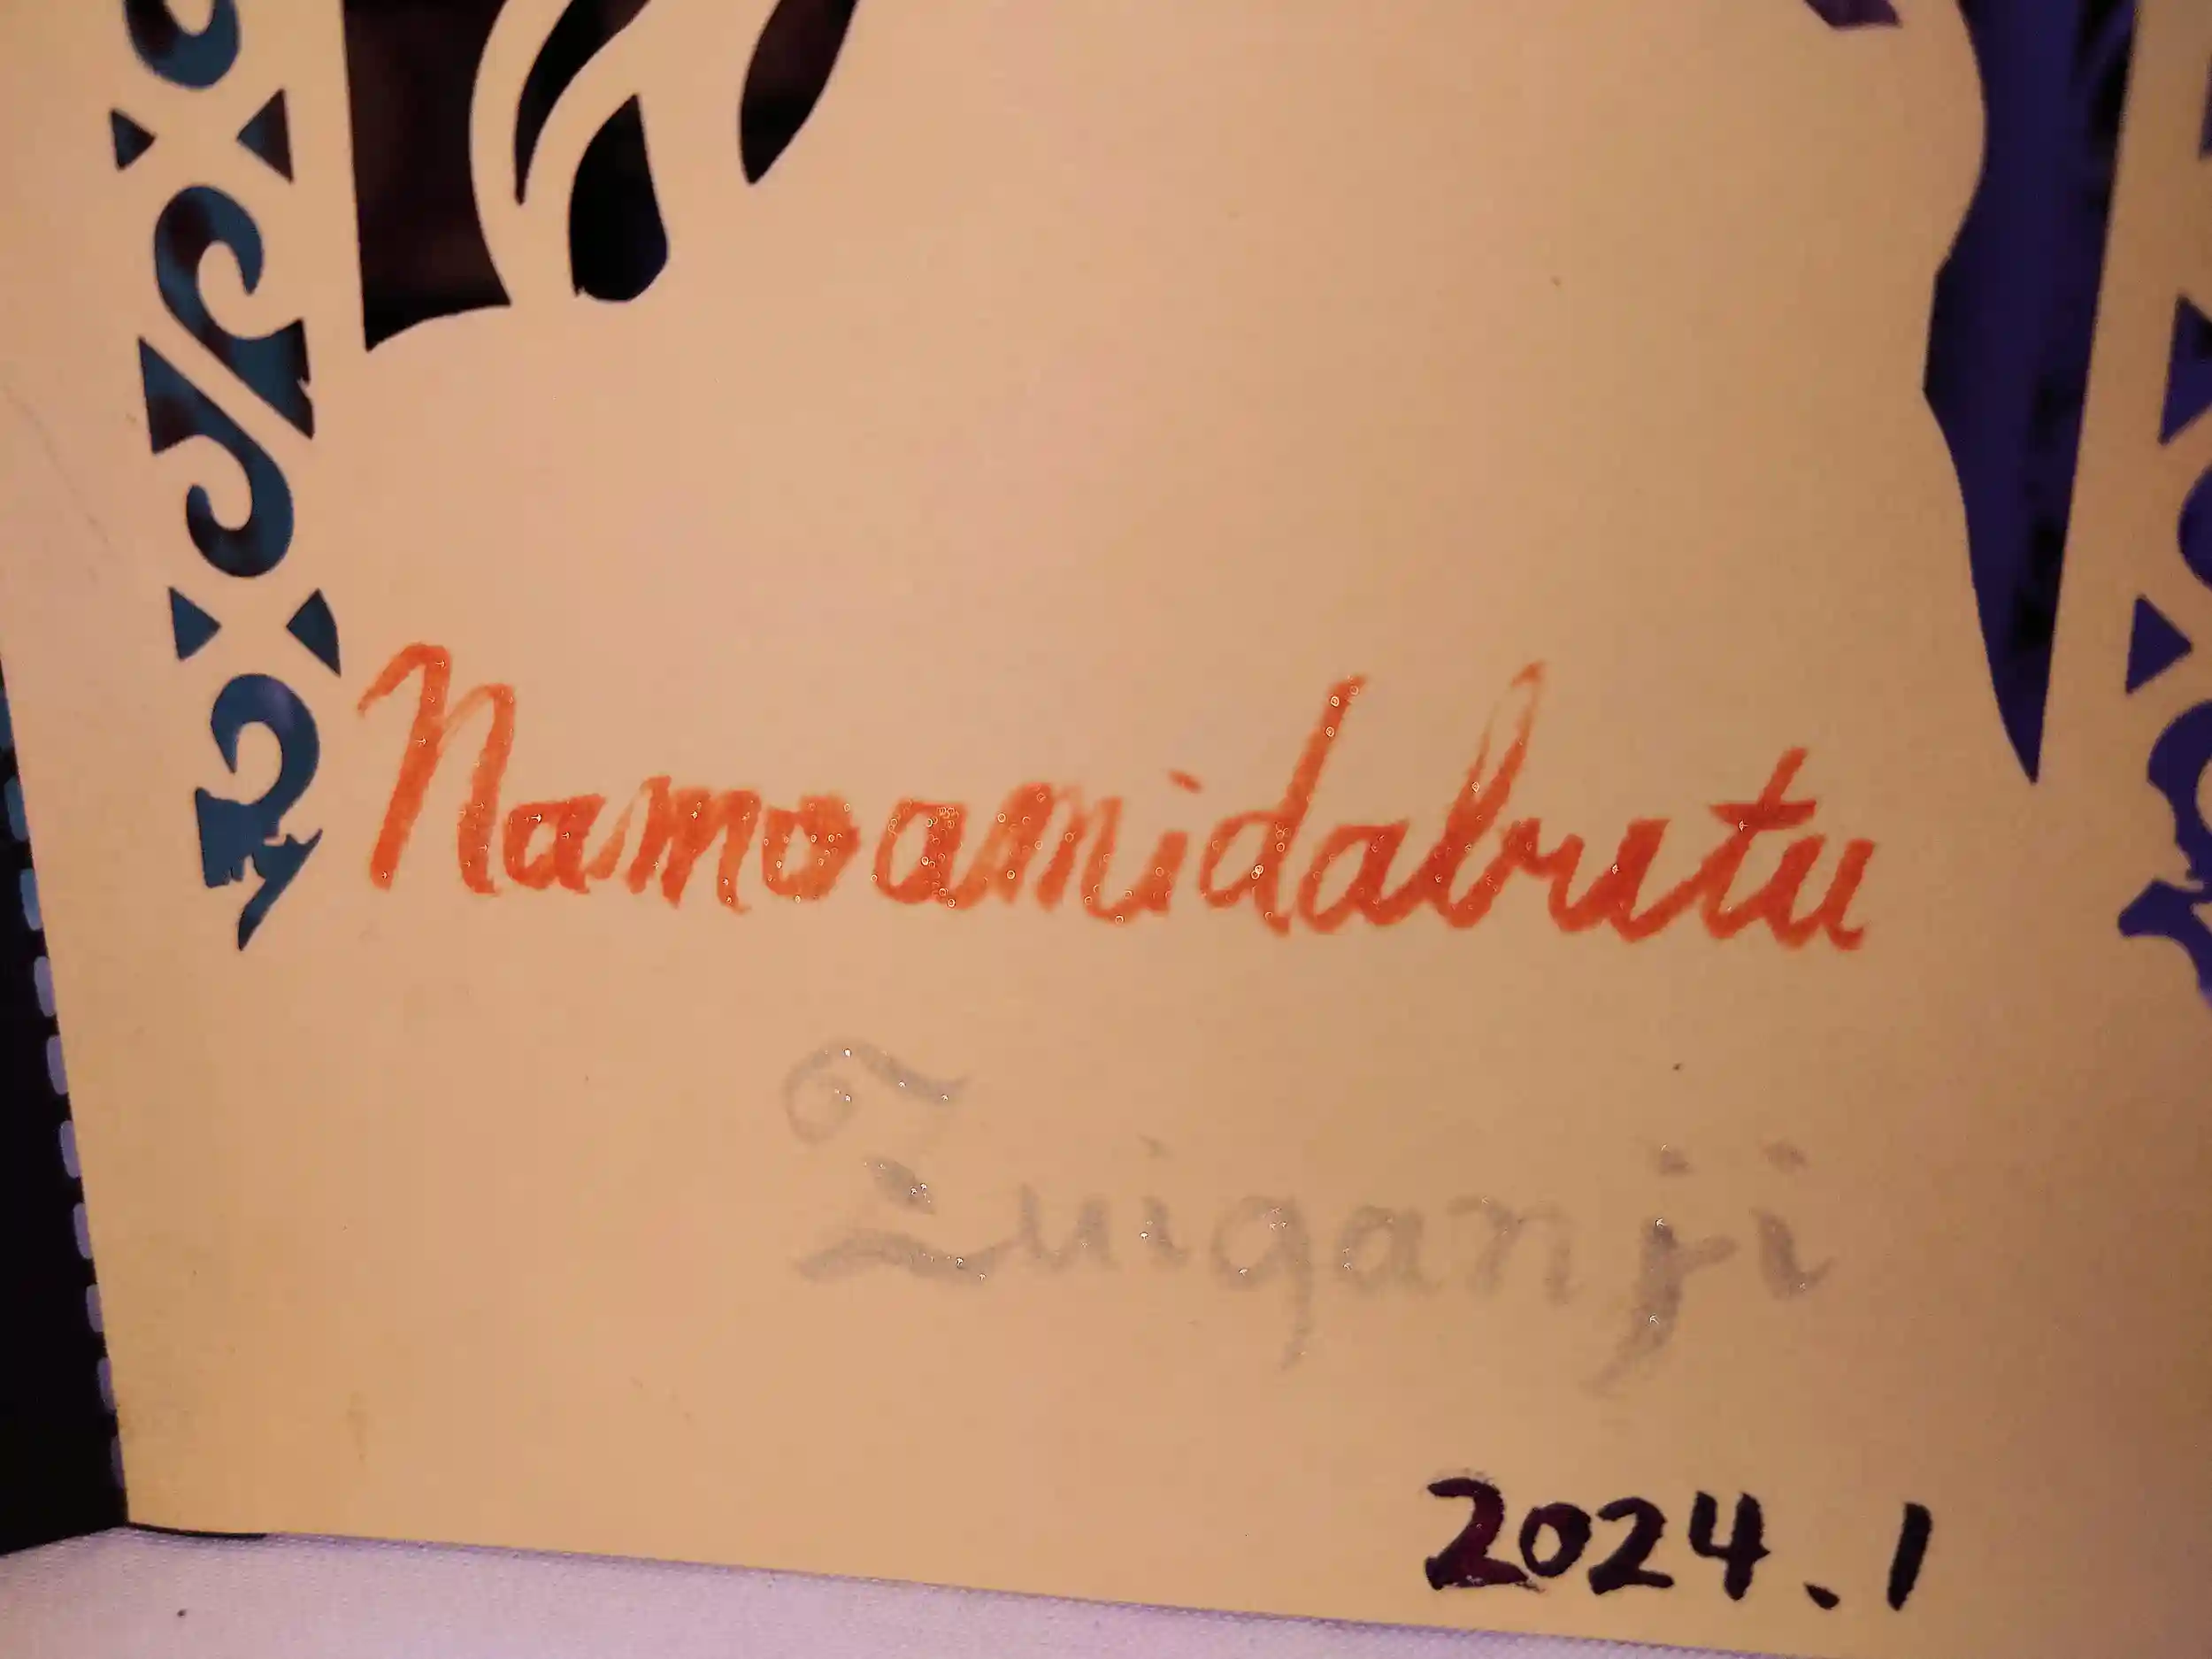 Namoamidabutu
Zuiganji
2024.1